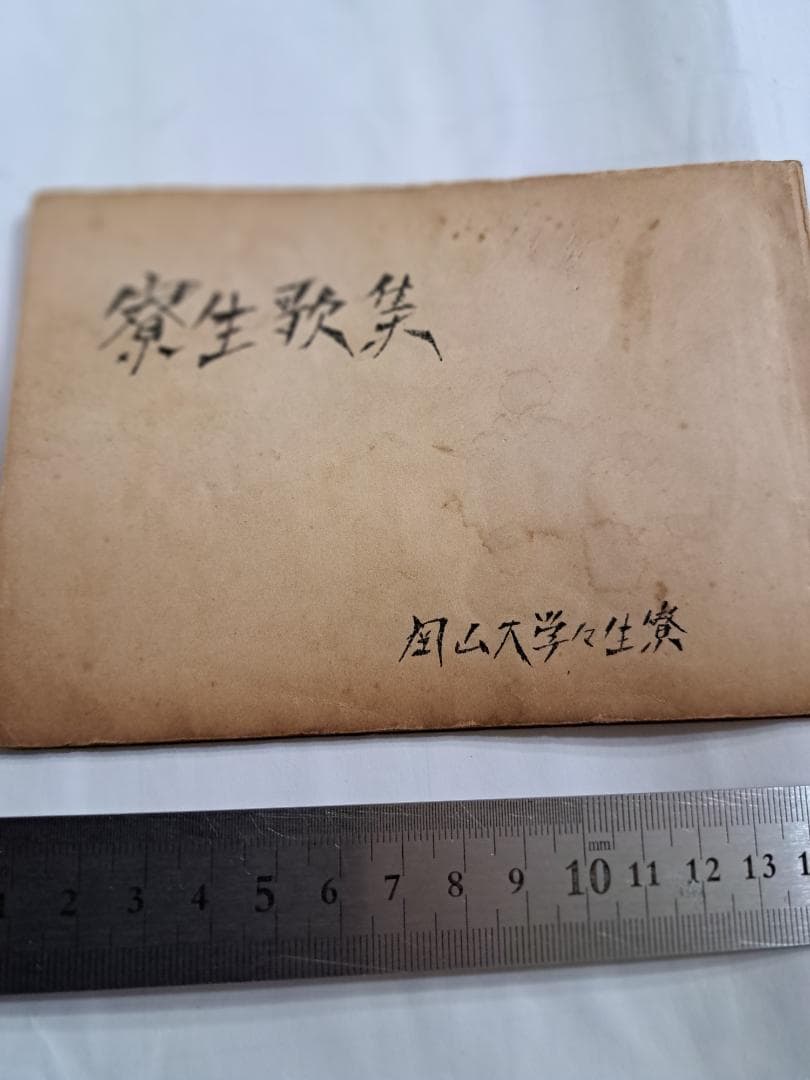 寮生歌集
岡山大学々生寮
mm
1 2 3 4 5 6 7 8 9 10 11 12 13 1